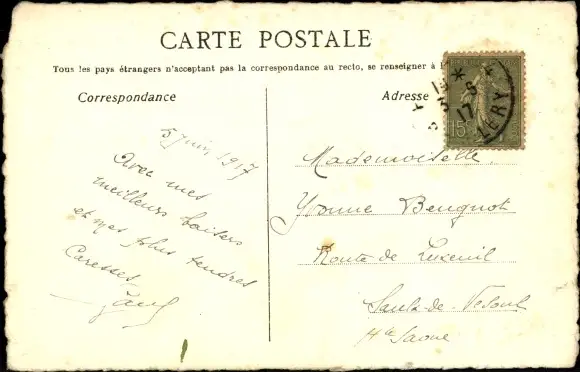 CARTE POSTALE
Tous les pays étrangers n'acceptant pas la correspondance au recto, se renseigner à
Correspondance
5 Juin 1917
Avec mes
meilleurs baisers
et mes plus tendres
Caresses
Adresse
15
17
LERY
Mademoiselle
Yvonne Beugnot
Route de Luxeuil
Saulx-de-Vesoul
Hte Saone